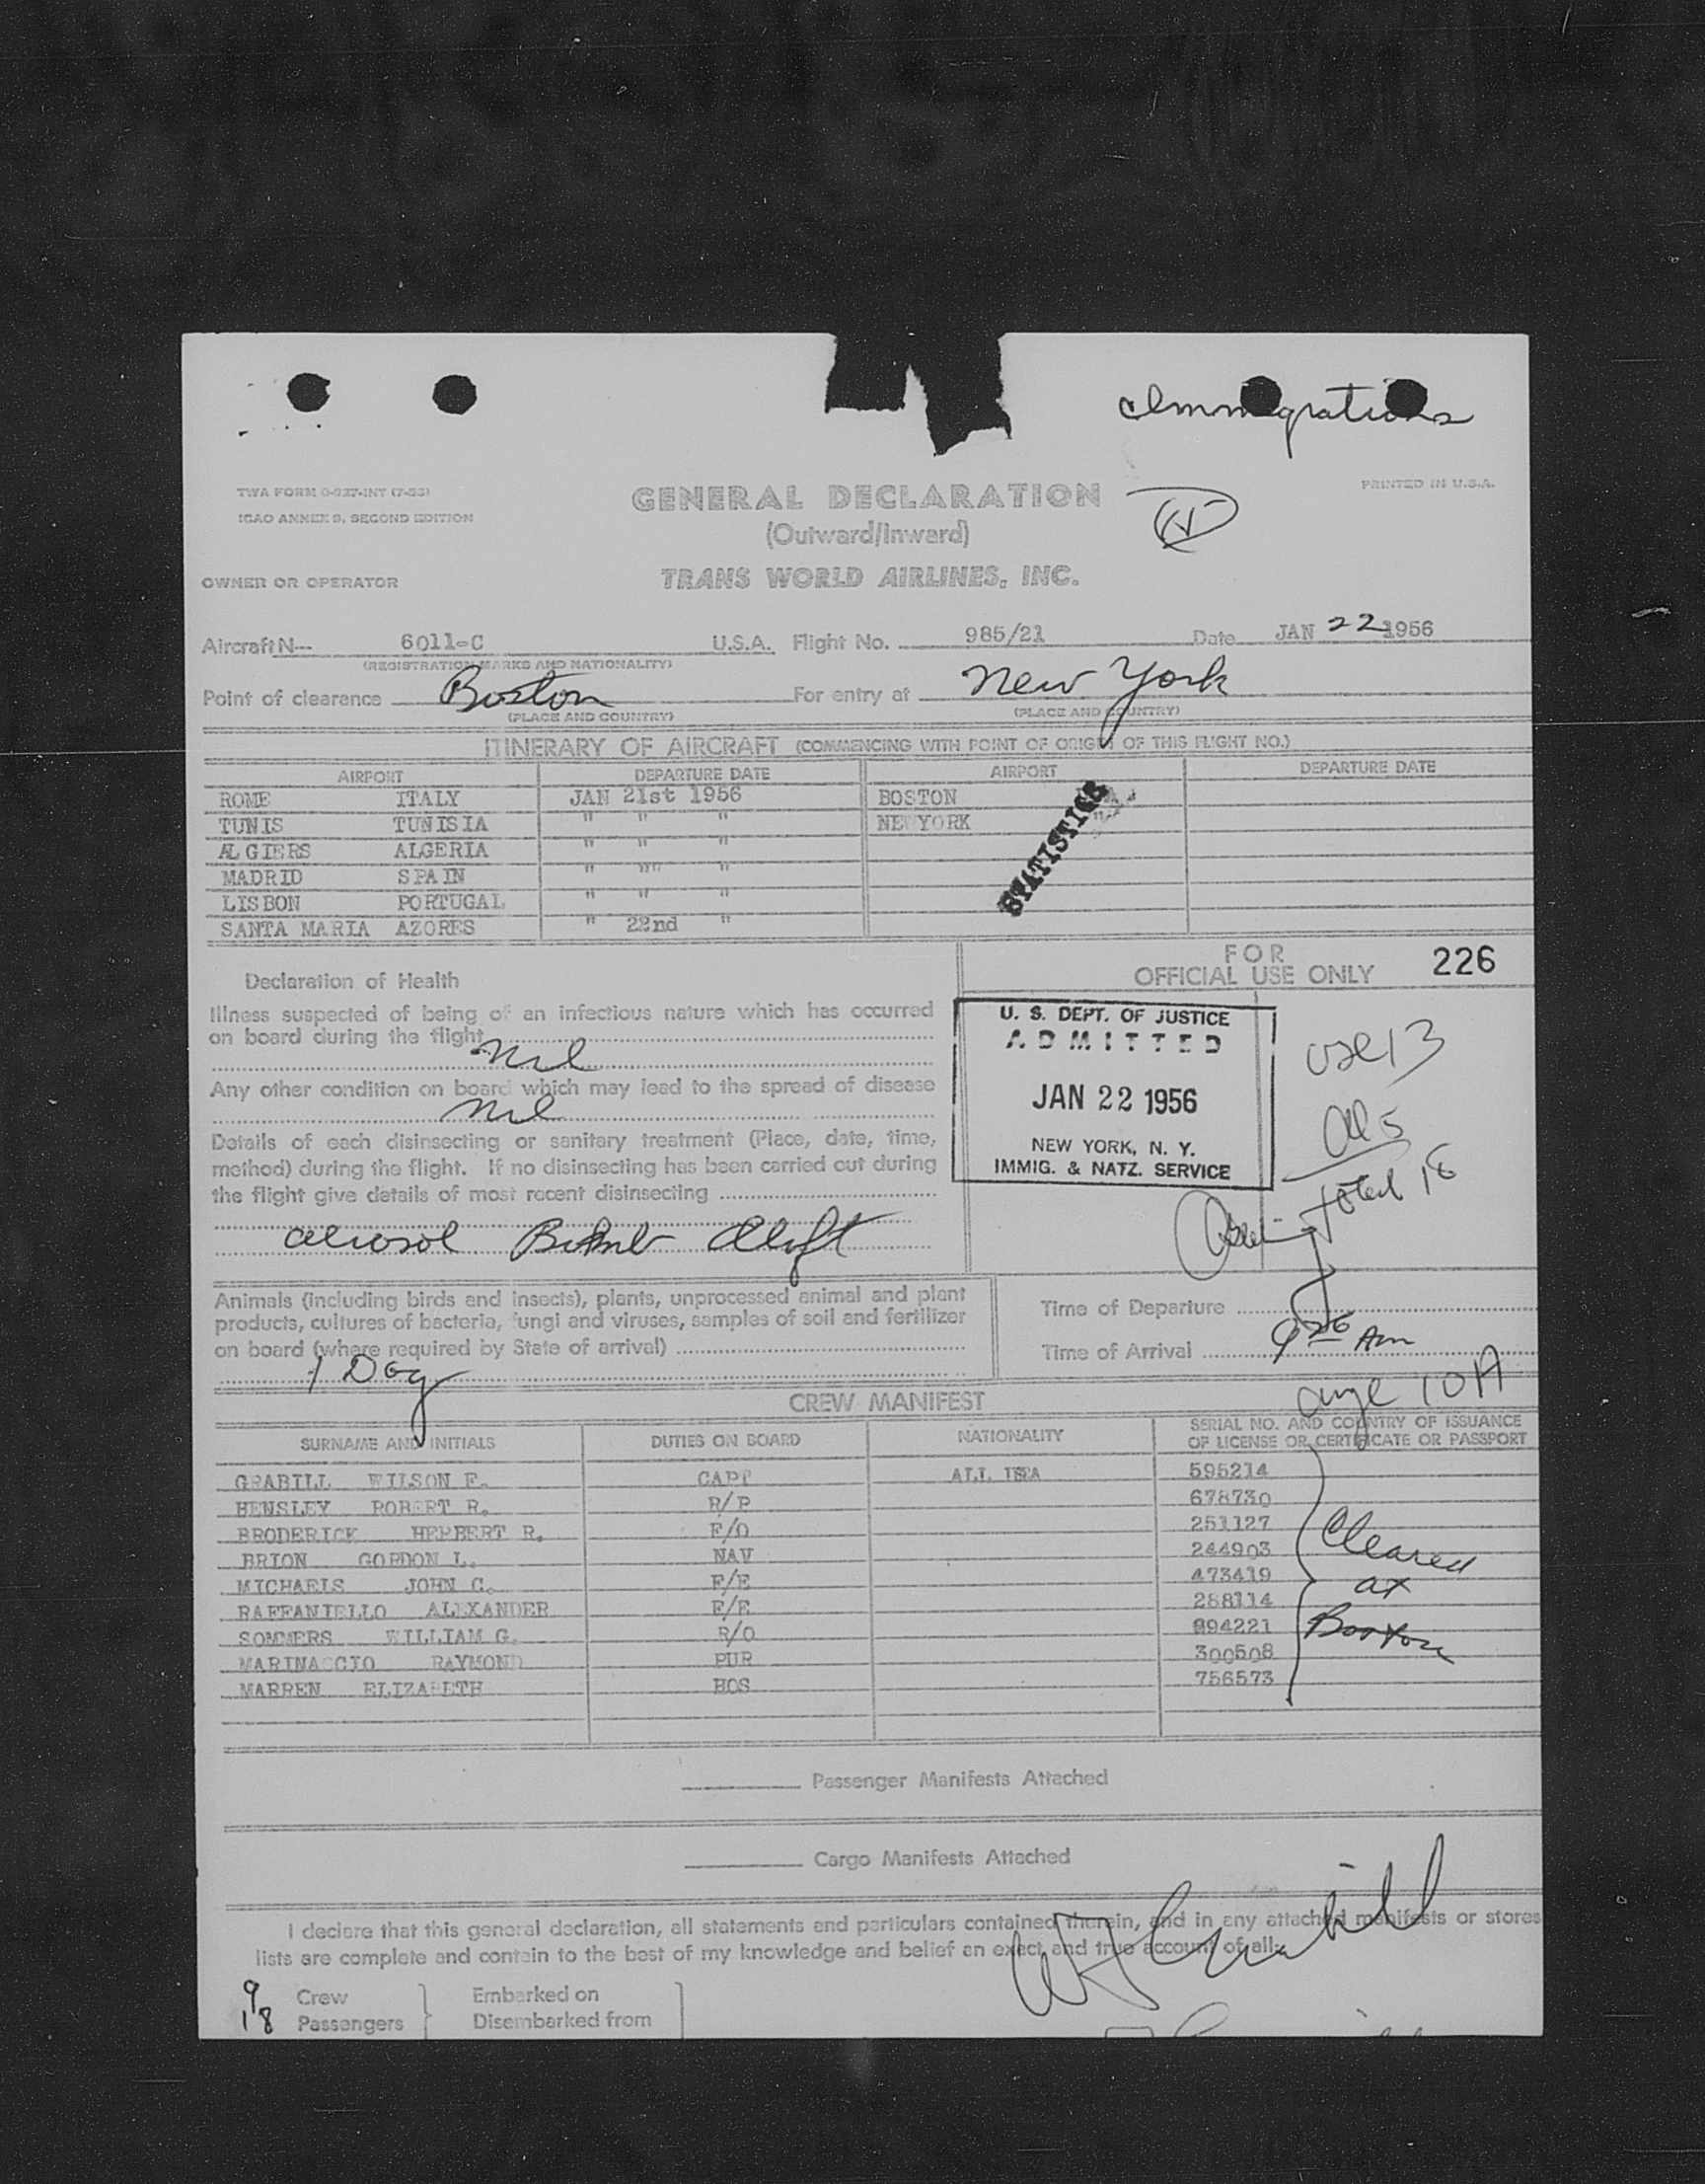 Immigrations
TWA FORM O-937-INT (7-53)
ICAO ANNEX 9, SECOND EDITION
PRINTED IN U.S.A.
GENERAL DECLARATION
(Outward/Inward)
OWNER OR OPERATOR TRANS WORLD AIRLINES, INC.
Aircraft N- 6011-C U.S.A. Flight No. 985/21 Date JAN 22 1956
(REGISTRATION MARKS AND NATIONALITY)
Point of clearance Boston For entry at New York
(PLACE AND COUNTRY) (PLACE AND COUNTRY)
ITINERARY OF AIRCRAFT (COMMENCING WITH POINT OF ORIGIN OF THIS FLIGHT NO.)
AIRPORT DEPARTURE DATE AIRPORT DEPARTURE DATE
ROME ITALY JAN 21st 1956 BOSTON
TUNIS TUNISIA " " " NEW YORK
ALGIERS ALGERIA " " "
MADRID SPAIN " "" "
LISBON PORTUGAL " " "
SANTA MARIA AZORES " 22nd "
STATISTICS
FOR
OFFICIAL USE ONLY 226
Declaration of Health
Illness suspected of being of an infectious nature which has occurred
on board during the flight
nil
Any other condition on board which may lead to the spread of disease
nil
Details of each disinsecting or sanitary treatment (Place, date, time,
method) during the flight. If no disinsecting has been carried out during
the flight give details of most recent disinsecting
aerosol Bomb Aloft
U. S. DEPT. OF JUSTICE
ADMITTED
JAN 22 1956
NEW YORK, N. Y.
IMMIG. & NATZ. SERVICE
usc 13
al 5
total 18
Animals (including birds and insects), plants, unprocessed animal and plant
products, cultures of bacteria, fungi and viruses, samples of soil and fertilizer
on board (where required by State of arrival)
1 Dog
Time of Departure
Time of Arrival 9 26 Am
10A
CREW MANIFEST
SURNAME AND INITIALS DUTIES ON BOARD NATIONALITY SERIAL NO. AND COUNTRY OF ISSUANCE
OF LICENSE OR CERTIFICATE OR PASSPORT
GRABILL WILSON F. CAPT ALL USA 595214
HENSLEY ROBERT R. R/P 678730
BRODERICK HERBERT R. F/O 251127
BRION GORDON L. NAV 244903
MICHAELS JOHN C. F/E 473419
RAFFANIELLO ALEXANDER F/E 288114
SOMMERS WILLIAM G. R/O 994221
MARINACCIO RAYMOND PUR 300508
MARREN ELIZABETH HOS 756573
Cleared
at
Boston
Passenger Manifests Attached
Cargo Manifests Attached
I declare that this general declaration, all statements and particulars contained therein, and in any attached manifests or stores
lists are complete and contain to the best of my knowledge and belief an exact and true account of all:
W F Grabill
9 Crew Embarked on
18 Passengers Disembarked from